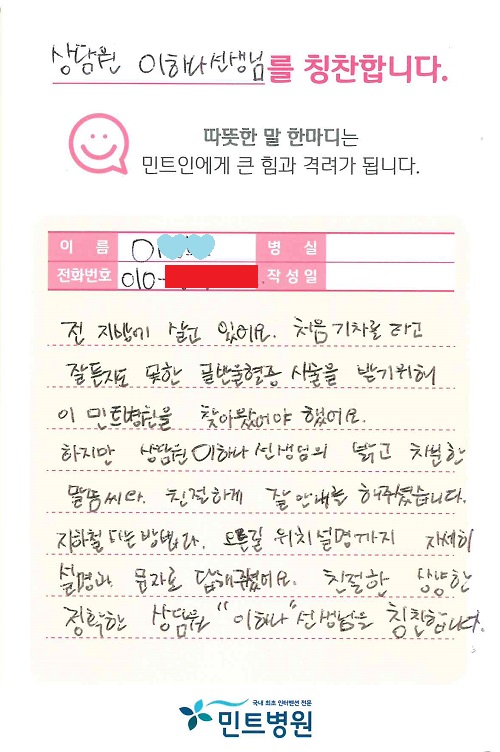 상담원 이하나선생님를 칭찬합니다.
따뜻한 말 한마디는
민트인에게 큰 힘과 격려가 됩니다.
이 름 이 병 실
전화번호 010- 작 성 일
전 지방에 살고 있어요. 처음 기차를 타고
잘튼지도 못한 골반울혈증 시술을 받기위해
이 민트병원을 찾아왔어야 했어요.
하지만 상담원 이하나 선생님의 밝고 차분한
말씀씨와. 친절하게 잘 안내를 해주셨습니다.
지하철 타는방법과. 모든길 위치설명까지 자세히
설명과 문자로 답해줬어요. 친절한 상냥한
정확한 상담원 "이하나" 선생님을 칭찬합니다.
국내 최초 인터벤션 전문
민트병원